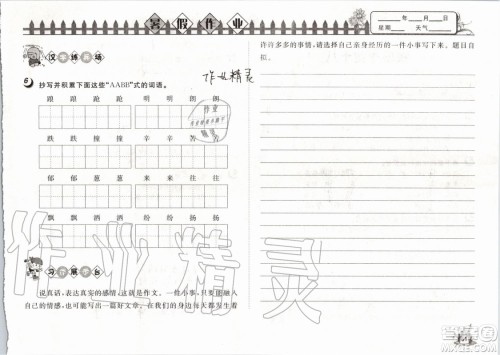 暑假作业
年 月 日
星期 天气
汉字练习场
6. 抄写并积累下面这些“AABB”式的词语。
踉 踉 跄 跄 明 明 朗 朗
跌 跌 撞 撞 辛 辛 苦 苦
郁 郁 葱 葱 来 来 往 往
飘 飘 洒 洒 纷 纷 扬 扬
习作展示台
说真话,表达真实的感情,这就是作文。一件小事,只要能融入
自己的情感,也可能写出一篇好文章。在我们的身边每天都发生着
许许多多的事情,请选择自己亲身经历的一件小事写下来。题目自
拟。
作业精灵
作业精灵